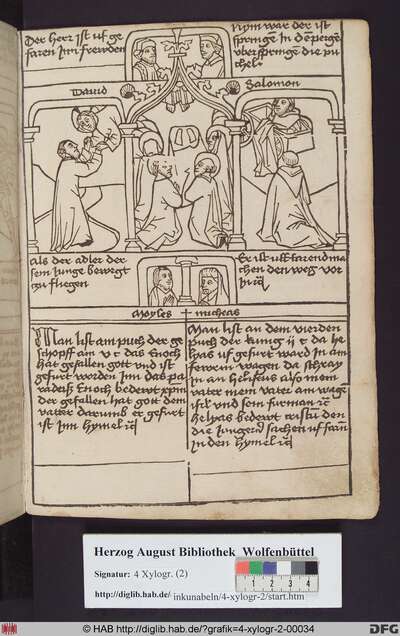 Der herr ist uf ge
faren Im frewden
Nym war der ist
springe In den perge
uberspringe die pu
chel
David
Salomon
als der adler der
sein Junge bewegt
zu fliegen
Er ist uff farend ma
chen den weg vor
In
Moyses + micheas
Man list am puch der ge
schöpff am v c das Enoch
hat gefallen gott und ist
gefurt worden Inn das pa
radeiß Enoch bedewt
der gefallen hat gott dem
vatter darumb er gefurt
ist Inn hymel
Man list an dem vierden
puch der kunig ij c da he
lyas uf gefurt ward In am
fewrein wagen da schray
vater mein vater am wage
und sein furman
helyas bedewt cristum den
die Junger sachen uf farn
In den hymel
Herzog August Bibliothek Wolfenbüttel
Signatur: 4 Xylogr. (2)
http://diglib.hab.de/ inkunabeln/4-xylogr-2/start.htm
1 2 3 4
© HAB http://diglib.hab.de/?grafik=4-xylogr-2-00034
DFG